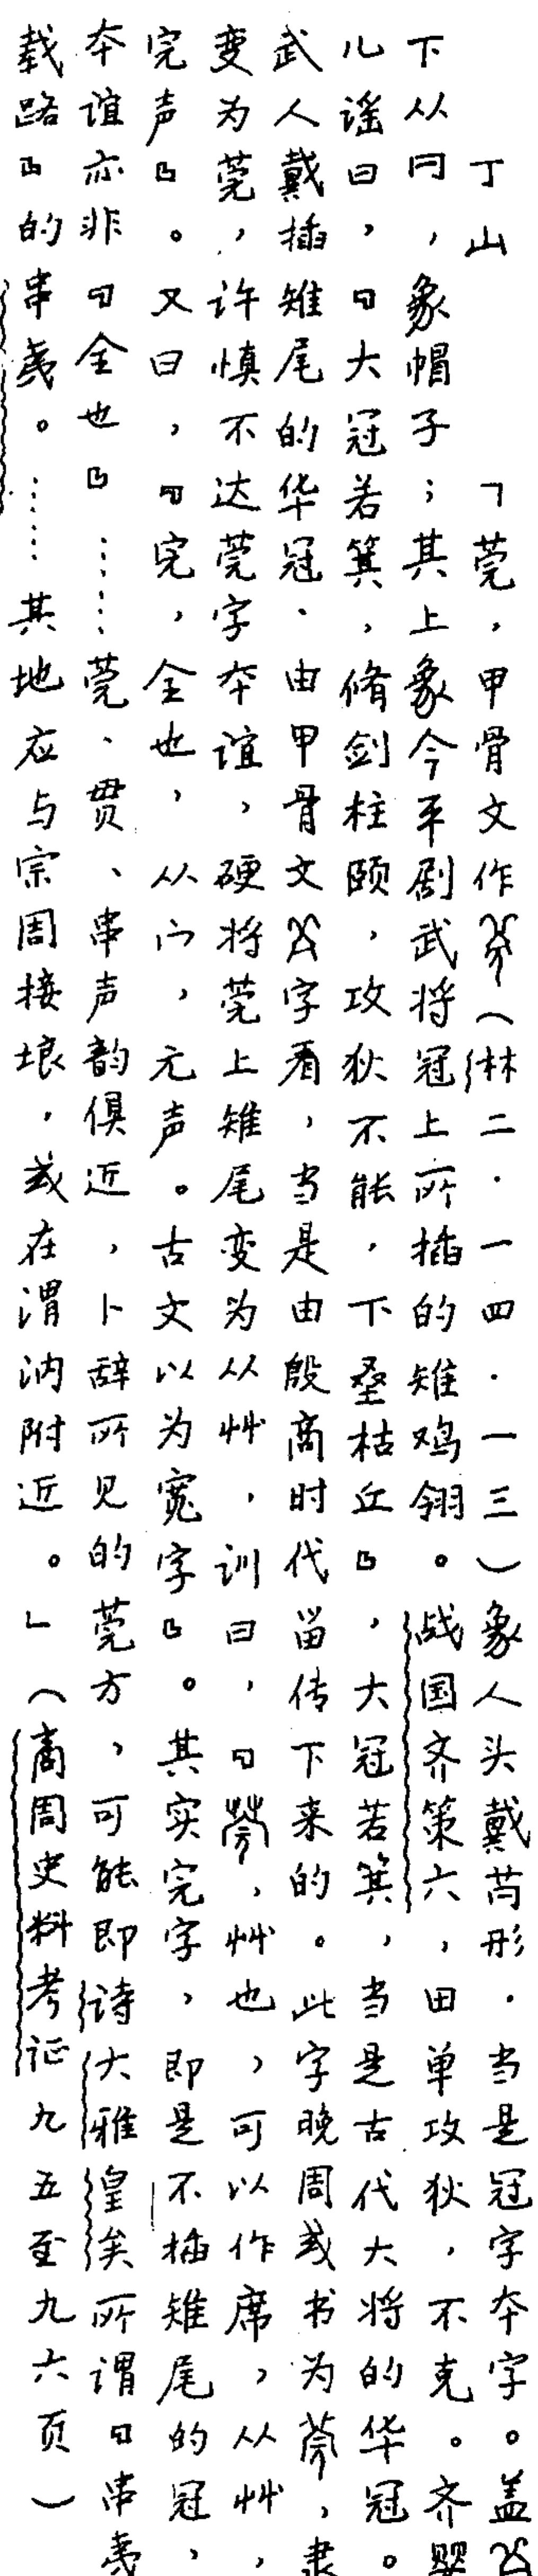 丁山　「莞，甲骨文作（林二·一四·一三）象人头戴芮形．当是冠字夲字。盖
下从冃，象帽子；其上象今平剧武将冠上所插的雉鸡翎。战国齐策六，田单攻狄，不克。齐婴
儿谣曰，『大冠若箕，脩剑柱颐，攻狄不能，下垒枯丘』，大冠若箕，当是古代大将的华冠。
武人戴插雉尾的华冠．由甲骨文字看，当是由殷商时代留传下来的。此字晚周或书为，隶
变为莞，许慎不达莞字夲谊，硬将莞上雉尾变为从艸，训曰，『，艸也，可以作席，从艸，
完声』。又曰，『完，全也，从宀，元声。古文以为宽字』。其实完字，即是不插雉尾的冠，
夲谊亦非『全也』……莞、贯、串声韵俱近，卜辞所见的莞方，可能即诗大雅皇矣所谓『串夷
载路』的串夷。……其地应与宗周接埌．或在渭汭附近。」（商周史料考证九五至九六页）